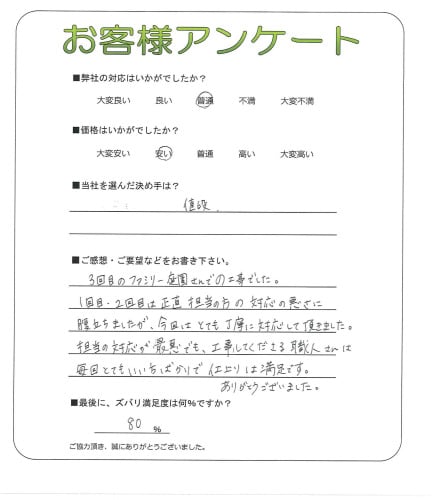 お客様アンケート
■弊社の対応はいかがでしたか?
大変良い 良い 普通 不満 大変不満
■価格はいかがでしたか?
大変安い 安い 普通 高い 大変高い
■当社を選んだ決め手は?
値段
■ご感想・ご要望などをお書き下さい。
3回目のファミリー庭園さんでの工事でした。
1回目・2回目は正直 担当の方の対応の悪さに
腹立ちましたが、今回はとても丁寧に対応して頂きました。
担当の対応が最悪でも、工事してくださる職人さんは
毎回とてもいい方ばかりで仕上りは満足です。
ありがとうございました。
■最後に、ズバリ満足度は何%ですか?
80 %
ご協力頂き、誠にありがとうございました。